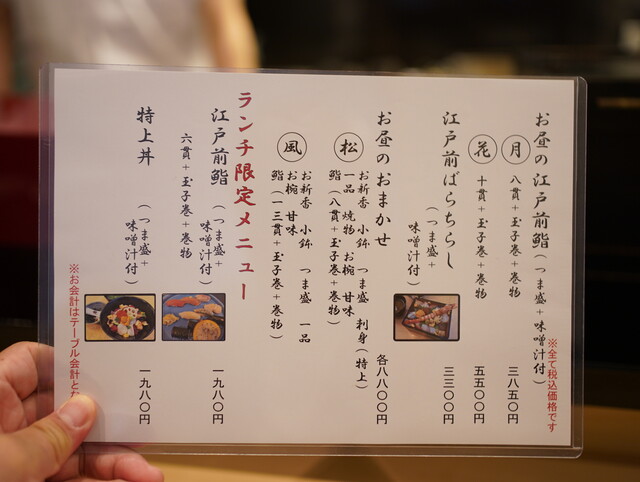 お昼の江戸前鮨(つま盛+味噌汁付)
※全て税込価格です
月 八貫+玉子巻+巻物 三八五〇円
花 十貫+玉子巻+巻物 五五〇〇円
江戸前ばらちらし 三三〇〇円
(つま盛+
味噌汁付)
お昼のおまかせ 各八八〇〇円
松 お新香 小鉢 つま盛 刺身(特上)
一品 焼物 お椀 甘味
鮨(八貫+玉子巻+巻物)
風 お新香 小鉢 つま盛 一品
お椀 甘味
鮨(一三貫+玉子巻+巻物)
ランチ限定メニュー
江戸前鮨(つま盛+
味噌汁付) 一九八〇円
六貫+玉子巻+巻物
特上丼(つま盛+
味噌汁付) 一九八〇円
※お会計はテーブル会計とな